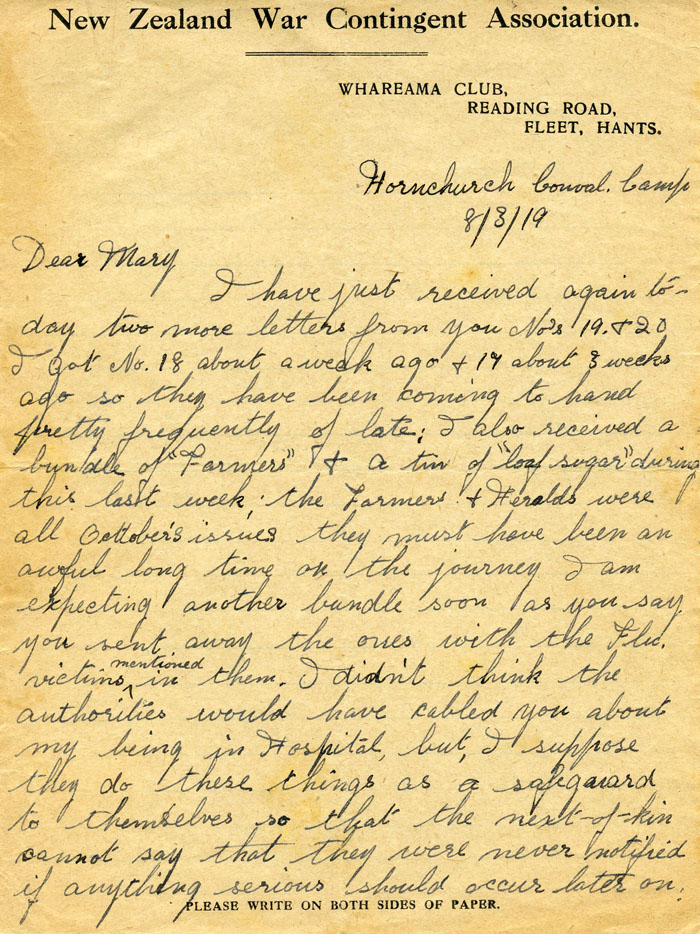 New Zealand War Contingent Association.
WHAREAMA CLUB,
READING ROAD,
FLEET, HANTS.
Hornchurch Conval. Camp
8/3/19
Dear Mary
I have just received again to-
day two more letters from you No's 19. & 20
I got No. 18 about a week ago & 17 about 3 weeks
ago so they have been coming to hand
pretty frequently of late; I also received a
bundle of "Farmers" & a tin of "loaf sugar" during
this last week; the Farmers & Heralds were
all October's issues they must have been an
awful long time on the journey I am
expecting another bundle soon as you say
you sent away the ones with the Flu.
victims mentioned in them. I didn't think the
authorities would have cabled you about
my being in Hospital, but, I suppose
they do these things as a safeguard
to themselves so that the next-of-kin
cannot say that they were never notified
if anything serious should occur later on.
PLEASE WRITE ON BOTH SIDES OF PAPER.